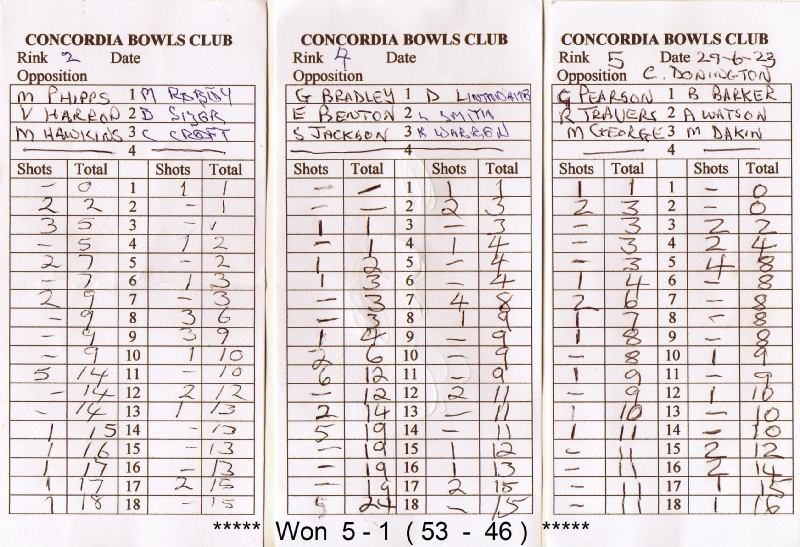 CONCORDIA BOWLS CLUB
Rink 2 Date
Opposition
M PHIPPS 1 M RODDY
V HARROD 2 B SIZER
M HAWKINS 3 C CROFT
4
Shots Total Shots Total
- 0 1 1 1
2 2 2 - 1
3 5 3 - 1
- 5 4 1 2
2 7 5 - 2
- 7 6 1 3
2 9 7 - 3
- 9 8 3 6
- 9 9 3 9
- 9 10 1 10
5 14 11 - 10
- 14 12 2 12
- 14 13 1 13
1 15 14 - 13
1 16 15 - 13
1 17 16 - 13
17 17 2 15
1 18 18 - 15
CONCORDIA BOWLS CLUB
Rink 4 Date
Opposition
G BRADLEY 1 D
E BENTON 2 SMITH
S JACKSON 3 K WARREN
4
Shots Total Shots Total
- - 1 1 1
- - 2 2 3
1 1 3 - 3
- 1 4 1 4
1 2 5 - 4
1 3 6 - 4
- 3 7 4 8
- 3 8 1 9
1 4 9 - 9
2 6 10 - 9
6 12 11 - 9
- 12 12 2 11
2 14 13 - 11
5 19 14 - 11
- 19 15 1 12
- 19 16 1 13
- 19 17 2 15
5 24 18 - 15
CONCORDIA BOWLS CLUB
Rink 5 Date 29-6-23
Opposition C. DONINGTON
G PEARSON 1 B BARKER
R TRAVERS 2 A WATSON
M GEORGE 3 M DAKIN
4
Shots Total Shots Total
1 1 1 - 0
2 3 2 - 0
- 3 3 2 2
- 3 4 2 4
- 3 5 4 8
1 4 6 - 8
2 6 7 - 8
1 7 8 - 8
1 8 9 - 8
- 8 10 1 9
1 9 11 - 9
- 9 12 1 10
1 10 13 - 10
1 11 14 - 10
- 11 15 2 12
- 11 16 2 14
- 11 17 1 15
- 11 18 1 16
***** Won 5 - 1 ( 53 - 46 ) *****